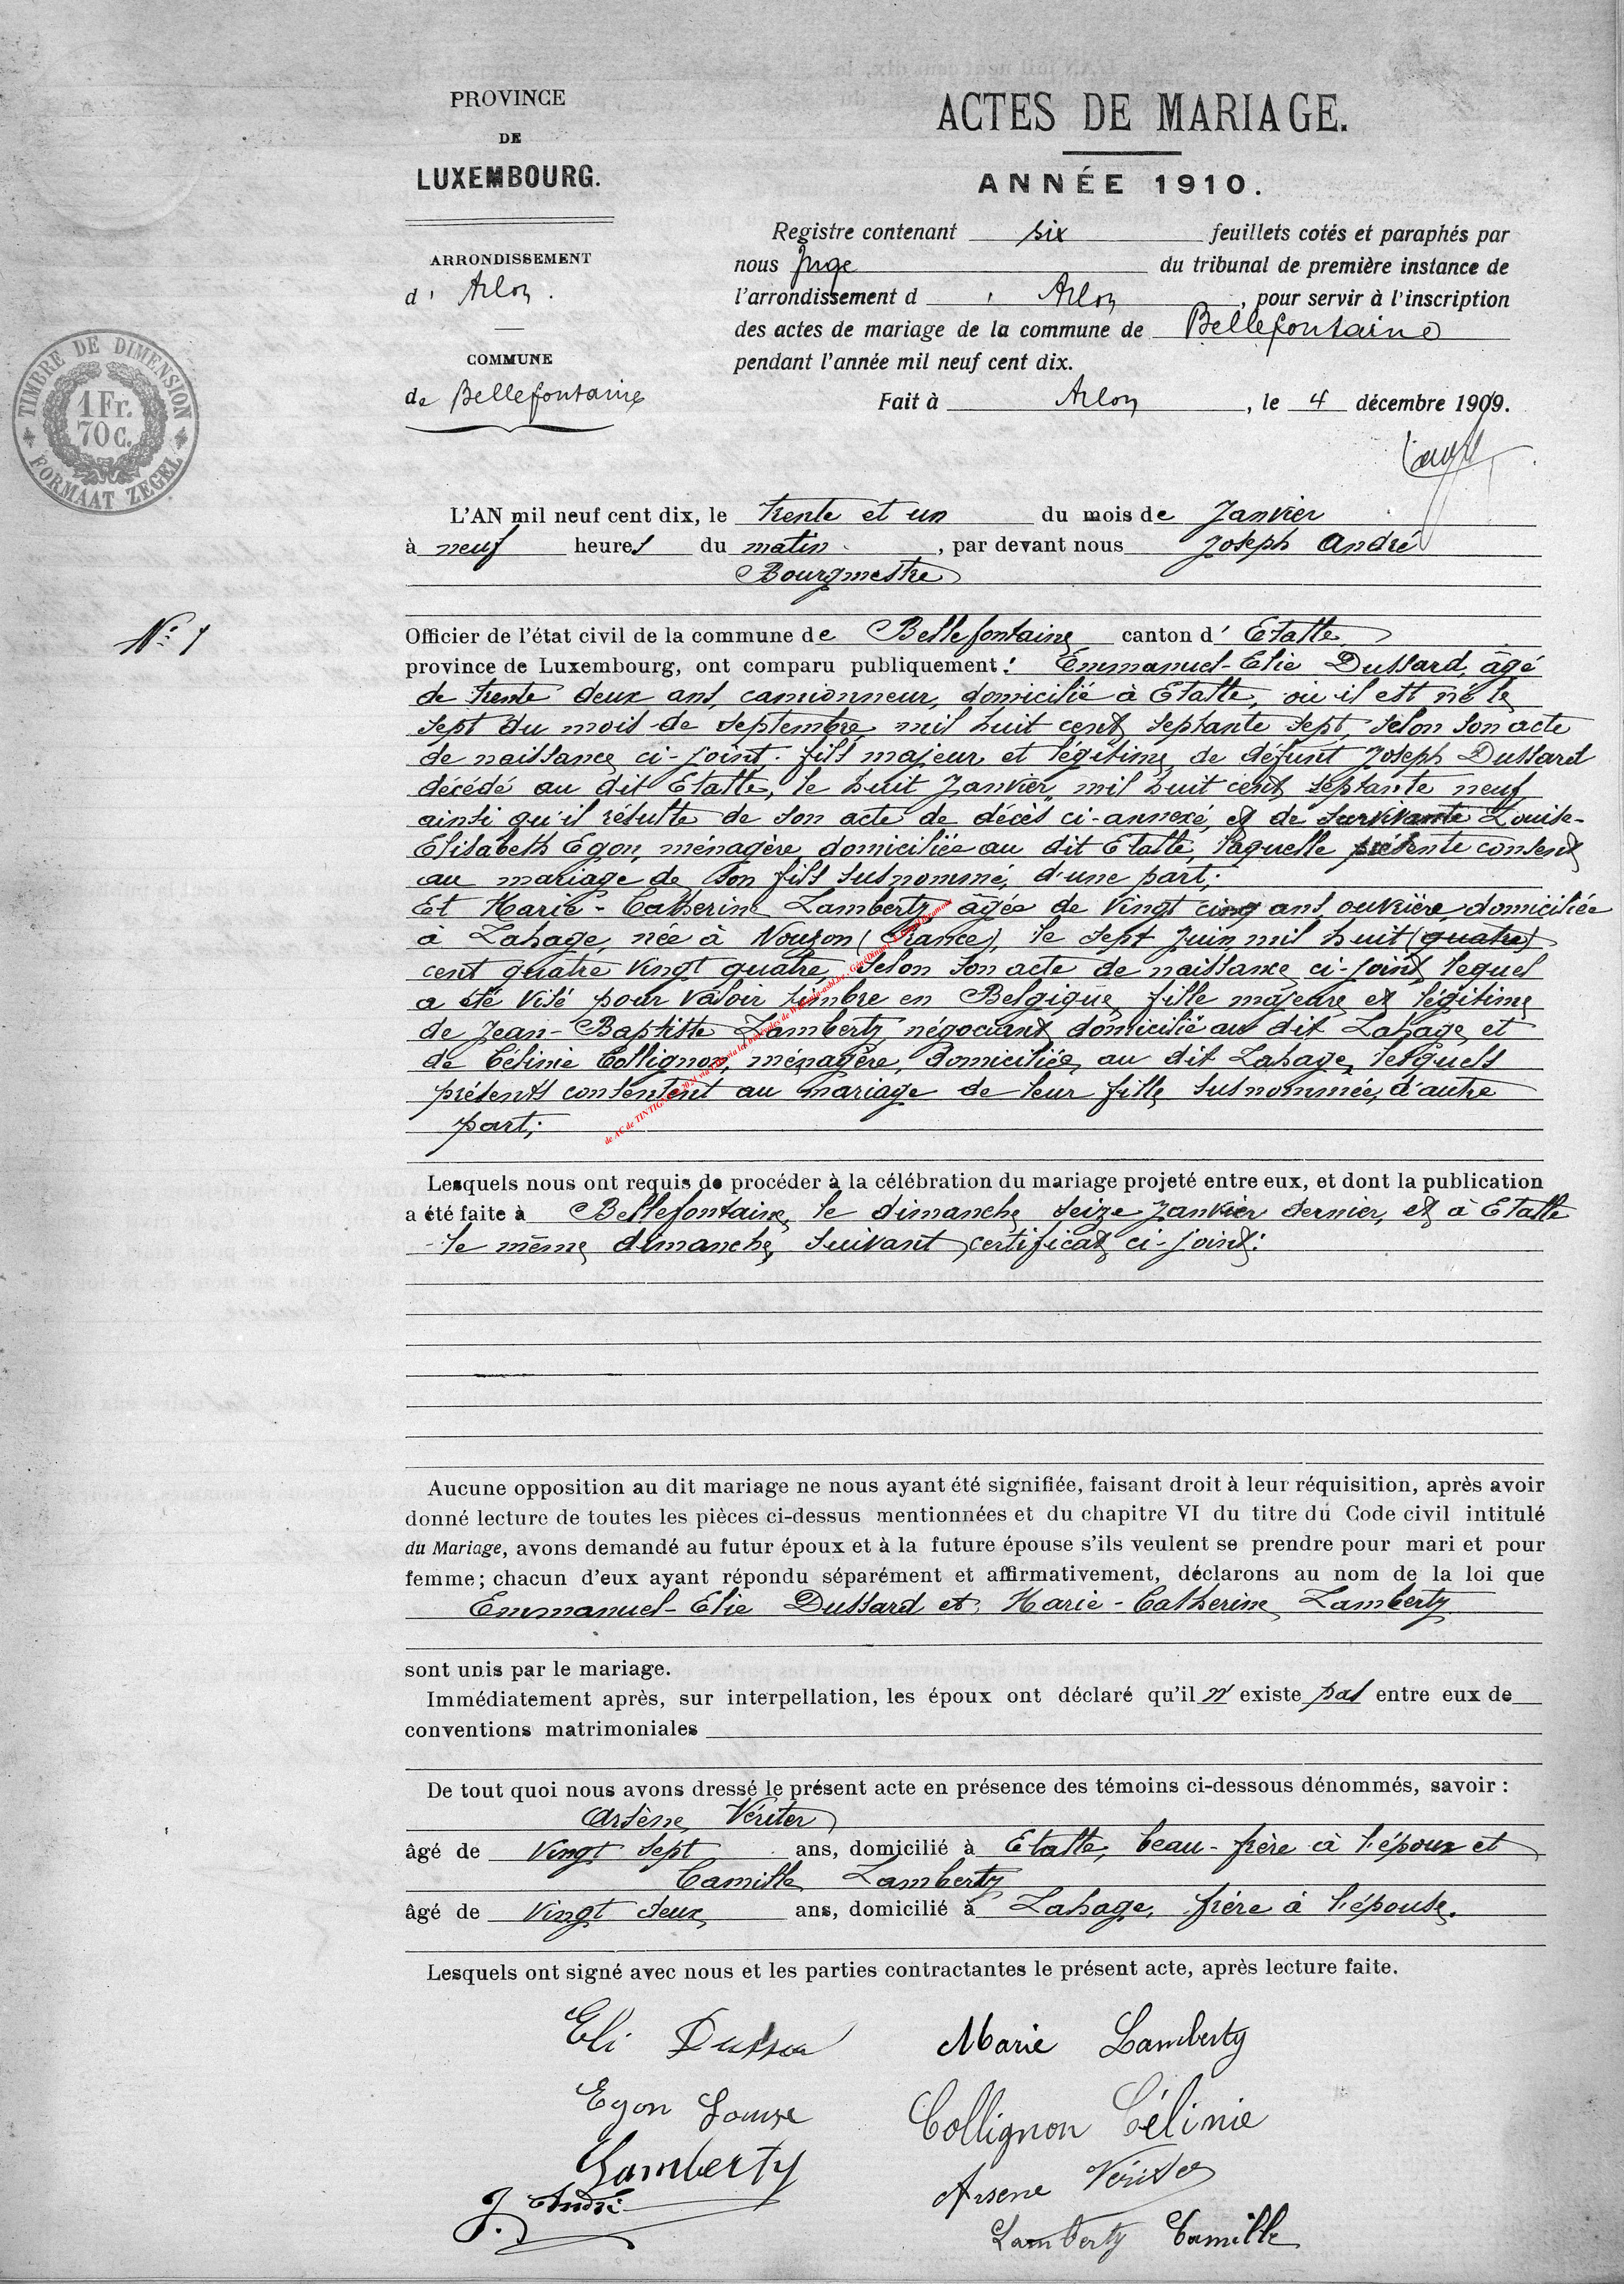 PROVINCE
DE
LUXEMBOURG.
ARRONDISSEMENT
d' Arlon.
COMMUNE
de Bellefontaine
TIMBRE DE DIMENSION
1 Fr.
70 c.
FORMAAT ZEGEL
ACTES DE MARIAGE.
ANNÉE 1910.
Registre contenant six feuillets cotés et paraphés par
nous Juge du tribunal de première instance de
l'arrondissement d ' Arlon, pour servir à l'inscription
des actes de mariage de la commune de Bellefontaine
pendant l'année mil neuf cent dix.
Fait à Arlon, le 4 décembre 1909.
L'AN mil neuf cent dix, le trente et un du mois de Janvier
à neuf heures du matin, par devant nous Joseph André
Bourgmestre
N° 1
Officier de l'état civil de la commune de Bellefontaine canton d' Etalle
province de Luxembourg, ont comparu publiquement: Emmanuel-Elie Dussard, âgé
de trente deux ans, camionneur, domicilié à Etalle, où il est né le
sept du mois de septembre mil huit cent septante sept, selon son acte
de naissance ci-joint. fils majeur et légitime de défunt Joseph Dussard
décédé au dit Etalle, le huit Janvier mil huit cent septante neuf
ainsi qu'il résulte de son acte de décès ci-annexé, et de survivante Louise-
Elisabeth Egon, ménagère domiciliée au dit Etalle, laquelle présente consent
au mariage de son fils susnommé, d'une part;
Et Marie-Catherine Lamberty âgée de vingt cinq ans, ouvrière, domiciliée
à Lahage, née à Nouzon (France), le sept juin mil huit (quatre)
cent quatre vingt quatre, selon son acte de naissance ci-joint, lequel
a été visé pour valoir timbre en Belgique, fille majeure et légitime
de Jean-Baptiste Lamberty, négociant, domicilié au dit Lahage, et
de Célinie Collignon, ménagère, domiciliée, au dit Lahage, lesquels
présents consentent au mariage de leur fille susnommée, d'autre
part;
Lesquels nous ont requis de procéder à la célébration du mariage projeté entre eux, et dont la publication
a été faite à Bellefontaine, le dimanche seize Janvier dernier, et à Etalle
le même dimanche, suivant certificat ci-joint:
Aucune opposition au dit mariage ne nous ayant été signifiée, faisant droit à leur réquisition, après avoir
donné lecture de toutes les pièces ci-dessus mentionnées et du chapitre VI du titre du Code civil intitulé
du Mariage, avons demandé au futur époux et à la future épouse s'ils veulent se prendre pour mari et pour
femme; chacun d'eux ayant répondu séparément et affirmativement, déclarons au nom de la loi que
Emmanuel-Elie Dussard et Marie-Catherine Lamberty
sont unis par le mariage.
Immédiatement après, sur interpellation, les époux ont déclaré qu'il n' existe pas entre eux de
conventions matrimoniales
De tout quoi nous avons dressé le présent acte en présence des témoins ci-dessous dénommés, savoir :
Arsène Vériter
âgé de vingt sept ans, domicilié à Etalle, beau-frère à l'époux et
Camille Lamberty
âgé de vingt deux ans, domicilié à Lahage, frère à l'épouse.
Lesquels ont signé avec nous et les parties contractantes le présent acte, après lecture faite.
Eli Marie Lamberty
Egon Louise Collignon Célinie
Lamberty Arsene Vériter
J. André
Lamberty Camille